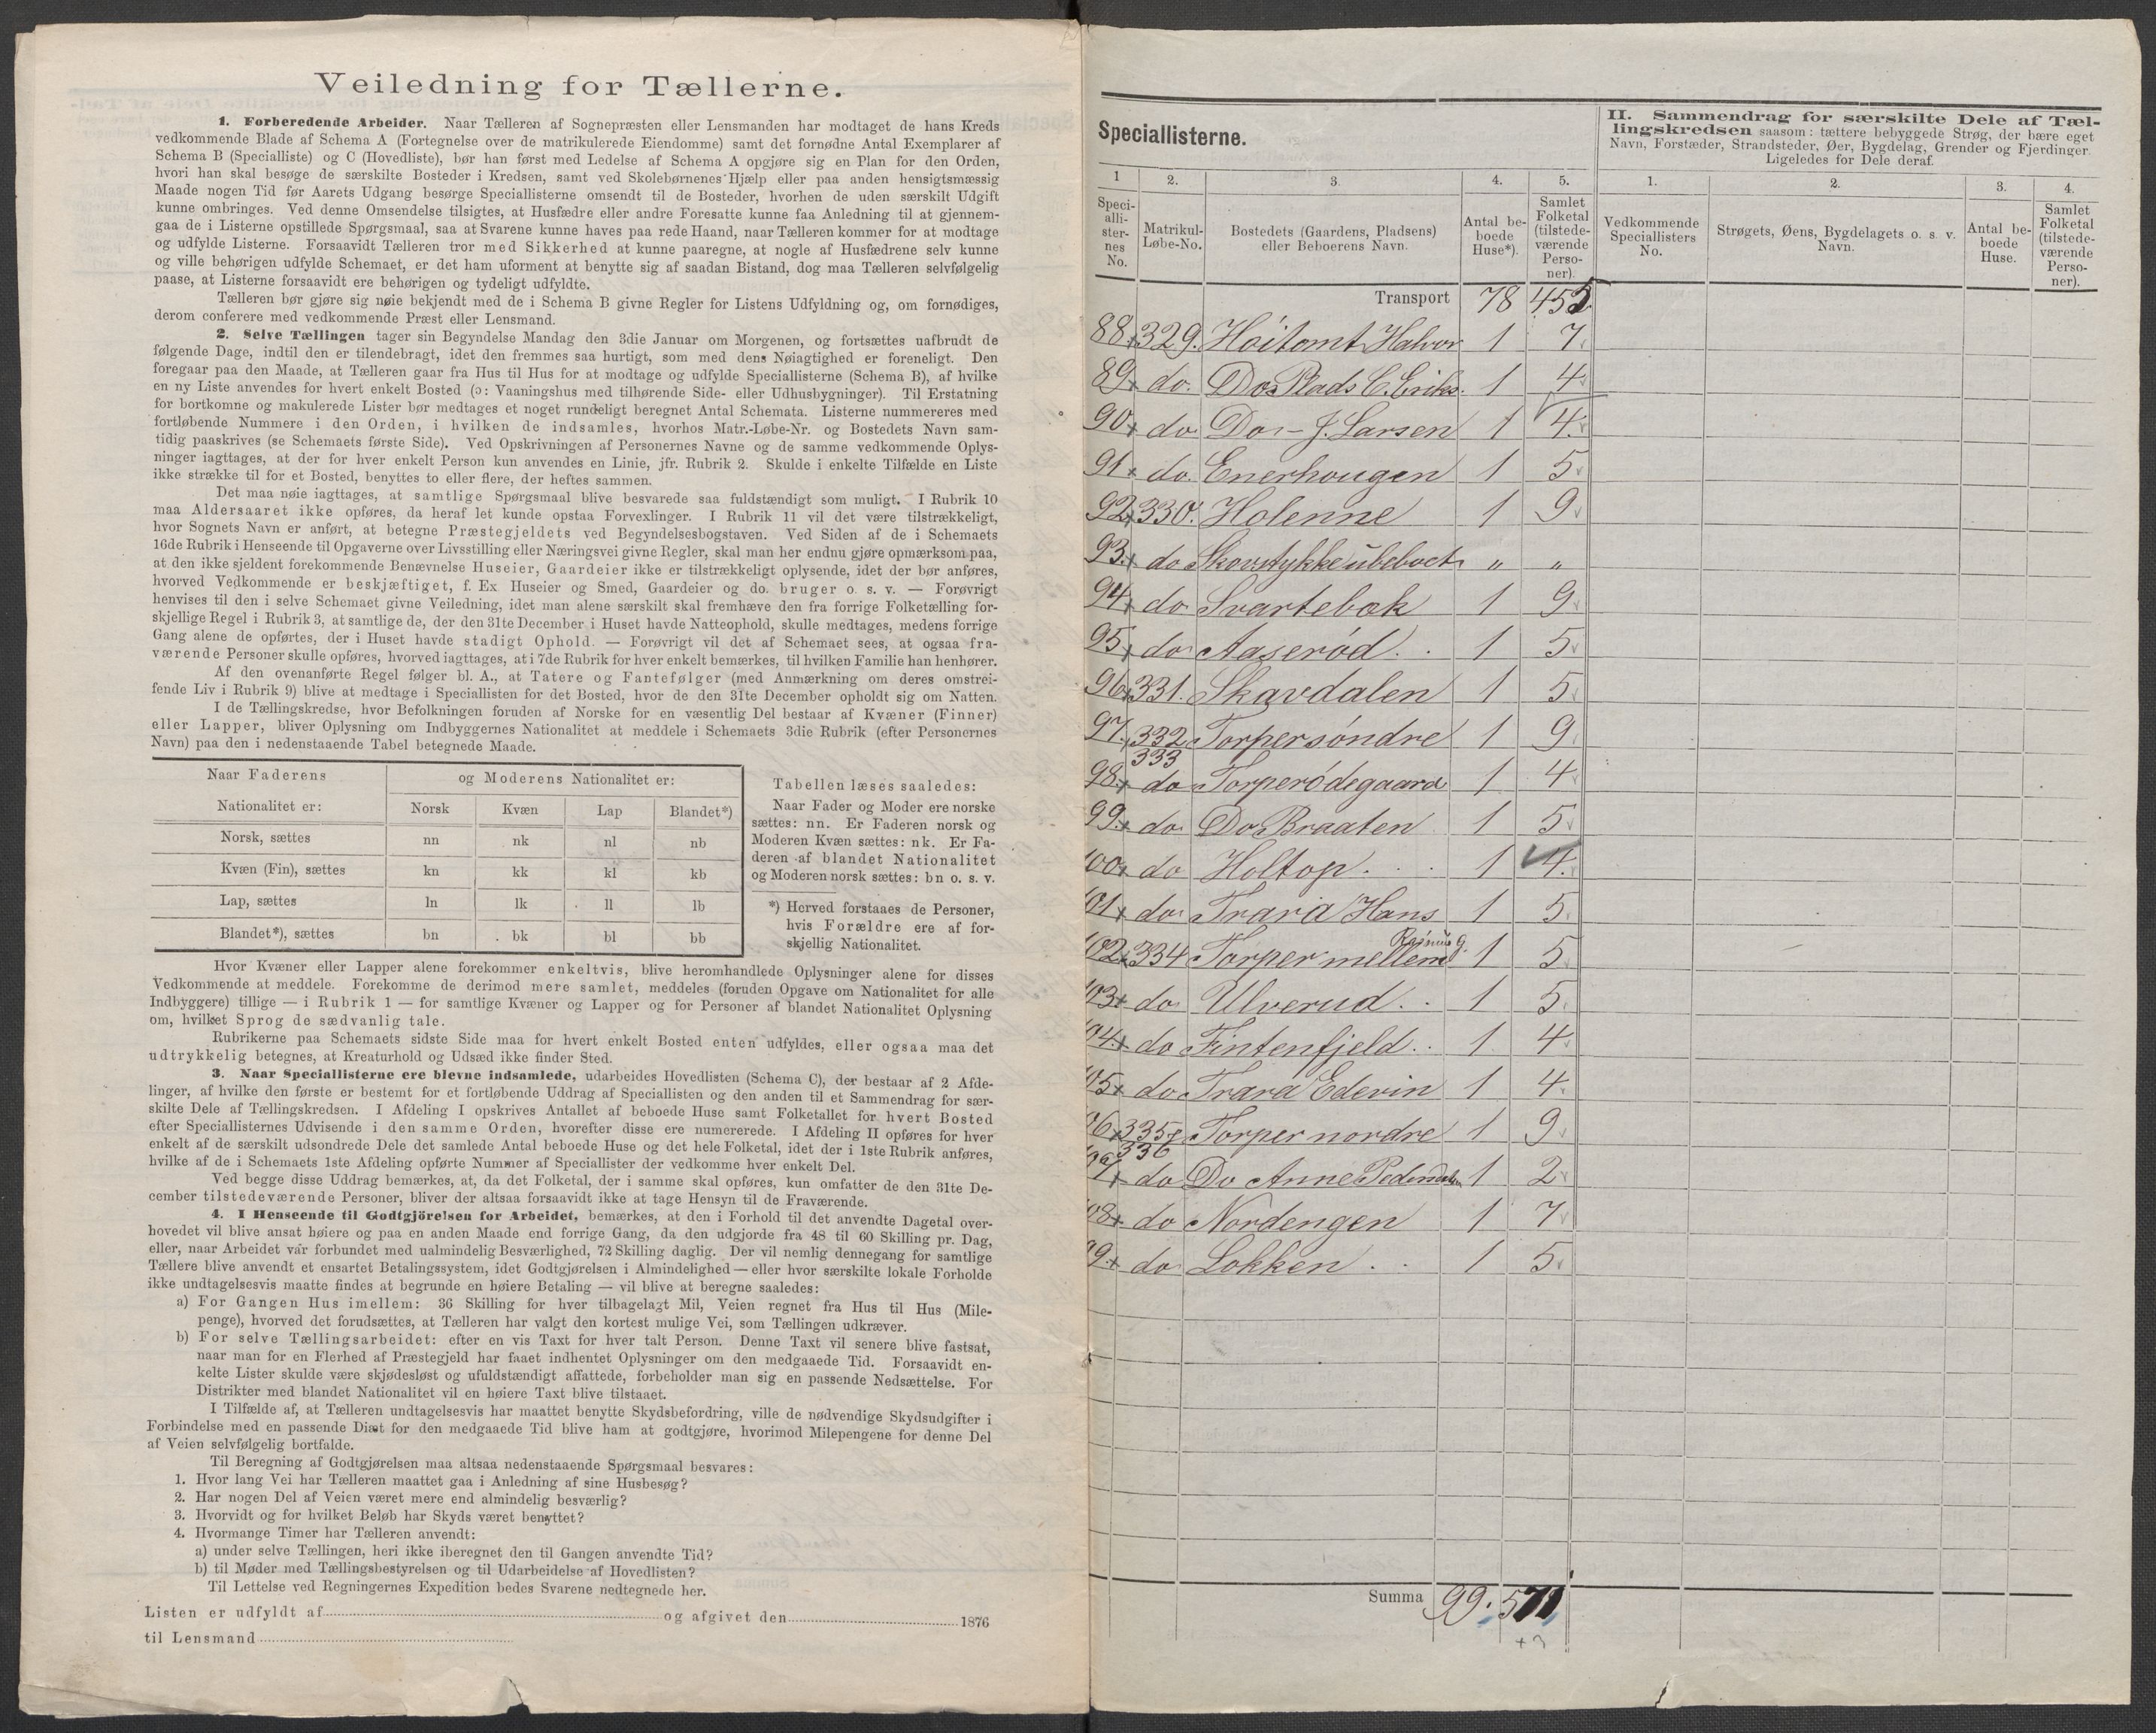 Veiledning for Tællerne.
1. Forberedende Arbeider. Naar Tælleren af Sognepræsten eller Lensmanden har modtaget de hans Kreds
vedkommende Blade af Schema A (Fortegnelse over de matrikulerede Eiendomme) samt det fornødne Antal Exemplarer af
Schema B (Specialliste) og C (Hovedliste), bør han først med Ledelse af Schema A opgjøre sig en Plan for den Orden,
hvori han skal besøge de særskilte Bosteder i Kredsen, samt ved Skolebørnenes Hjælp eller paa anden hensigtsmæssig
Maade nogen Tid før Aarets Udgang besørge Speciallisterne omsendt til de Bosteder, hvorhen de uden særskilt Udgift
kunne ombringes. Ved denne Omsendelse tilsigtes, at Husfædre eller andre Foresatte kunne faa Anledning til at gjennem-
gaa de i Listerne opstillede Spørgsmaal, saa at Svarene kunne haves paa rede Haand, naar Tælleren kommer for at modtage
og udfylde Listerne. Forsaavidt Tælleren tror med Sikkerhed at kunne paaregne, at nogle af Husfædrene selv kunne
og ville behørigen udfylde Schemaet, er det ham uforment at benytte sig af saadan Bistand, dog maa Tælleren selvfølgelig
paase, at Listerne forsaavidt ere behørigen og tydeligt udfyldte.
Tælleren bør gjøre sig nøie bekjendt med de i Schema B givne Regler for Listens Udfyldning og, om fornødiges,
derom conferere med vedkommende Præst eller Lensmand.
2. Selve Tællingen tager sin Begyndelse Mandag den 3die Januar om Morgenen, og fortsættes uafbrudt de
følgende Dage, indtil den er tilendebragt, idet den fremmes saa hurtigt, som med dens Nøiagtighed er foreneligt. Den
foregaar paa den Maade, at Tælleren gaar fra Hus til Hus for at modtage og udfylde Speciallisterne (Schema B), af hvilke
en ny Liste anvendes for hvert enkelt Bosted (ɔ: Vaaningshus med tilhørende Side- eller Udhusbygninger). Til Erstatning
for bortkomne og makulerede Lister bør medtages et noget rundeligt beregnet Antal Schemata. Listerne nummereres med
fortløbende Nummere i den Orden, i hvilken de indsamles, hvorhos Matr.-Løbe-Nr. og Bostedets Navn sam-
tidig paaskrives (se Schemaets første Side). Ved Opskrivningen af Personernes Navne og de samme vedkommende Oplys-
ninger iagttages, at der for hver enkelt Person kun anvendes en Linie, jfr. Rubrik 2. Skulde i enkelte Tilfælde en Liste
ikke strække til for et Bosted, benyttes to eller flere, der heftes sammen.
Det maa nøie iagttages, at samtlige Spørgsmaal blive besvarede saa fuldstændigt som muligt. I Rubrik 10
maa Aldersaaret ikke opføres, da heraf let kunde opstaa Forvexlinger. I Rubrik 11 vil det være tilstrækkeligt,
hvor Sognets Navn er anført, at betegne Præstegjeldets ved Begyndelsesbogstaven. Ved Siden af de i Schemaets
16de Rubrik i Henseende til Opgaverne over Livsstilling eller Næringsvei givne Regler, skal man her endnu gjøre opmærksom paa,
at den ikke sjeldent forekommende Benævnelse Huseier, Gaardeier ikke er tilstrækkeligt oplysende, idet der bør anføres,
hvorved Vedkommende er beskjæftiget, f. Ex Huseier og Smed, Gaardeier og do. bruger o. s. v. — Forøvrigt
henvises til den i selve Schemaet givne Veiledning, idet man alene særskilt skal fremhæve den fra forrige Folketælling for-
skjellige Regel i Rubrik 3, at samtlige de, der den 31te December i Huset havde Natteophold, skulle medtages, medens forrige
Gang alene de opførtes, der i Huset havde stadigt Ophold. — Forøvrigt vil det af Schemaet sees, at ogsaa fra-
værende Personer skulle opføres, hvorved iagttages, at i 7de Rubrik for hver enkelt bemærkes, til hvilken Familie han henhører.
Af den ovenanførte Regel følger bl. A., at Tatere og Fantefølger (med Anmærkning om deres omstrei-
fende Liv i Rubrik 9) blive at medtage i Speciallisten for det Bosted, hvor de den 31te December opholdt sig om Natten.
I de Tællingskredse, hvor Befolkningen foruden af Norske for en væsentlig Del bestaar af Kvæner (Finner)
eller Lapper, bliver Oplysning om Indbyggernes Nationalitet at meddele i Schemaets 3die Rubrik (efter Personernes
Navn) paa den i nedenstaaende Tabel betegnede Maade.
Naar Faderens og Moderens Nationalitet er:
Nationalitet er: Norsk Kvæn Lap Blandet*)
Norsk, sættes nn nk nl nb
Kvæn (Fin), sættes kn kk kl kb
Lap, sættes ln lk ll lb
Blandet*), sættes bn bk bl bb
Tabellen læses saaledes:
Naar Fader og Moder ere norske
sættes: nn. Er Faderen norsk og
Moderen Kvæn sættes: nk. Er Fa-
deren af blandet Nationalitet
og Moderen norsk sættes: bn o. s. v.
*) Herved forstaaes de Personer,
hvis Forældre ere af for-
skjellig Nationalitet.
Hvor Kvæner eller Lapper alene forekommer enkeltvis, blive heromhandlede Oplysninger alene for disses
Vedkommende at meddele. Forekomme de derimod mere samlet, meddeles (foruden Opgave om Nationalitet for alle
Indbyggere) tillige — i Rubrik 1 — for samtlige Kvæner og Lapper og for Personer af blandet Nationalitet Oplysning
om, hvilket Sprog de sædvanlig tale.
Rubrikerne paa Schemaets sidste Side maa for hvert enkelt Bosted enten udfyldes, eller ogsaa maa det
udtrykkelig betegnes, at Kreaturhold og Udsæd ikke finder Sted.
3. Naar Speciallisterne ere blevne indsamlede, udarbeides Hovedlisten (Schema C), der bestaar af 2 Afde-
linger, af hvilke den første er bestemt for et fortløbende Uddrag af Speciallisten og den anden til et Sammendrag for sær-
skilte Dele af Tællingskredsen. I Afdeling I opskrives Antallet af beboede Huse samt Folketallet for hvert Bosted
efter Speciallisternes Udvisende i den samme Orden, hvorefter disse ere numererede. I Afdeling II opføres for hver
enkelt af de særskilt udsondrede Dele det samlede Antal beboede Huse og det hele Folketal, idet der i 1ste Rubrik anføres,
hvilke af de i Schemaets 1ste Afdeling opførte Nummer af Speciallister der vedkomme hver enkelt Del.
Ved begge disse Uddrag bemærkes, at, da det Folketal, der i samme skal opføres, kun omfatter de den 31te De-
cember tilstedeværende Personer, bliver der altsaa forsaavidt ikke at tage Hensyn til de Fraværende.
4. I Henseende til Godtgjörelsen for Arbeidet, bemærkes, at den i Forhold til det anvendte Dagetal over-
hovedet vil blive ansat høiere og paa en anden Maade end forrige Gang, da den udgjorde fra 48 til 60 Skilling pr. Dag,
eller, naar Arbeidet var forbundet med ualmindelig Besværlighed, 72 Skilling daglig. Der vil nemlig dennegang for samtlige
Tællere blive anvendt et ensartet Betalingssystem, idet Godtgjørelsen i Almindelighed — eller hvor særskilte lokale Forholde
ikke undtagelsesvis maatte findes at begrunde en høiere Betaling — vil blive at beregne saaledes:
a) For Gangen Hus imellem: 36 Skilling for hver tilbagelagt Mil, Veien regnet fra Hus til Hus (Mile-
penge), hvorved det forudsættes, at Tælleren har valgt den kortest mulige Vei, som Tællingen udkræver.
b) For selve Tællingsarbeidet: efter en vis Taxt for hver talt Person. Denne Taxt vil senere blive fastsat,
naar man for en Flerhed af Præstegjeld har faaet indhentet Oplysninger om den medgaaede Tid. Forsaavidt en-
kelte Lister skulde være skjødesløst og ufuldstændigt affattede, forbeholder man sig en passende Nedsættelse. For
Distrikter med blandet Nationalitet vil en høiere Taxt blive tilstaaet.
I Tilfælde af, at Tælleren undtagelsesvis har maattet benytte Skydsbefordring, ville de nødvendige Skydsudgifter i
Forbindelse med en passende Diæt for den medgaaede Tid blive ham at godtgjøre, hvorimod Milepengene for denne Del
af Veien selvfølgelig bortfalde.
Til Beregning af Godtgjørelsen maa altsaa nedenstaaende Spørgsmaal besvares:
1. Hvor lang Vei har Tælleren maattet gaa i Anledning af sine Husbesøg?
2. Har nogen Del af Veien været mere end almindelig besværlig?
3. Hvorvidt og for hvilket Beløb har Skyds været benyttet?
4. Hvormange Timer har Tælleren anvendt:
a) under selve Tællingen, heri ikke iberegnet den til Gangen anvendte Tid?
b) til Møder med Tællingsbestyrelsen og til Udarbeidelse af Hovedlisten?
Til Lettelse ved Regningernes Expedition bedes Svarene nedtegnede her.
Listen er udfyldt af og afgivet den 1876
til Lensmand
Speciallisterne.
1 2. 3. 4. 5.
Speci-
alli-
ster-
nes
No.
Matrikul-
Løbe-No.
Bostedets (Gaardens, Pladsens)
eller Beboerens Navn.
Antal be-
boede
Huse*).
Samlet
Folketal
(tilstede-
værende
Perso-
ner).
II. Sammendrag for særskilte Dele af Tæl-
lingskredsen saasom: tættere bebyggede Strøg, der bære eget
Navn, Forstæder, Strandsteder, Øer, Bygdelag, Grender og Fjerdinger.
Ligeledes for Dele deraf.
1. 2. 3. 4.
Vedkommende
Speciallisters
No.
Strøgets, Øens, Bygdelagets o. s. v.
Navn.
Antal be-
boede
Huse.
Samlet
Folketal
(tilstede-
værende
Perso-
ner).
Transport 78 455
88 329. Höitomt Halvor 1 7
89 do. Do Plads C. Eriks. 1 4
90 do Do - J. Larsen 1 4
91 do. Enerhougen 1 5
92 330. Holenne 1 9
93 do Skovstykke ubeboet " "
94 do Svartebæk 1 9
95 do Aaseröd 1 5
96 331. Skavdalen 1 5
97. 332 Torper söndre 1 9
333
98 do Torperödegaard 1 4
99 do Do Braaten 1 5
100 do Holtop 1 4
101 do Trara Hans 1 5
102 334 Torper mellem Rasmus G. 1 5
103 do Ulverud 1 5
04 do Fintenfjeld 1 4
05 do Trara Edevin 1 4
06 335 Torper nordre 1 9
336
do Do Anne 1 2
08 do Nordengen 1 7
09 do Lökken 1 5
Summa 99. 571
+3